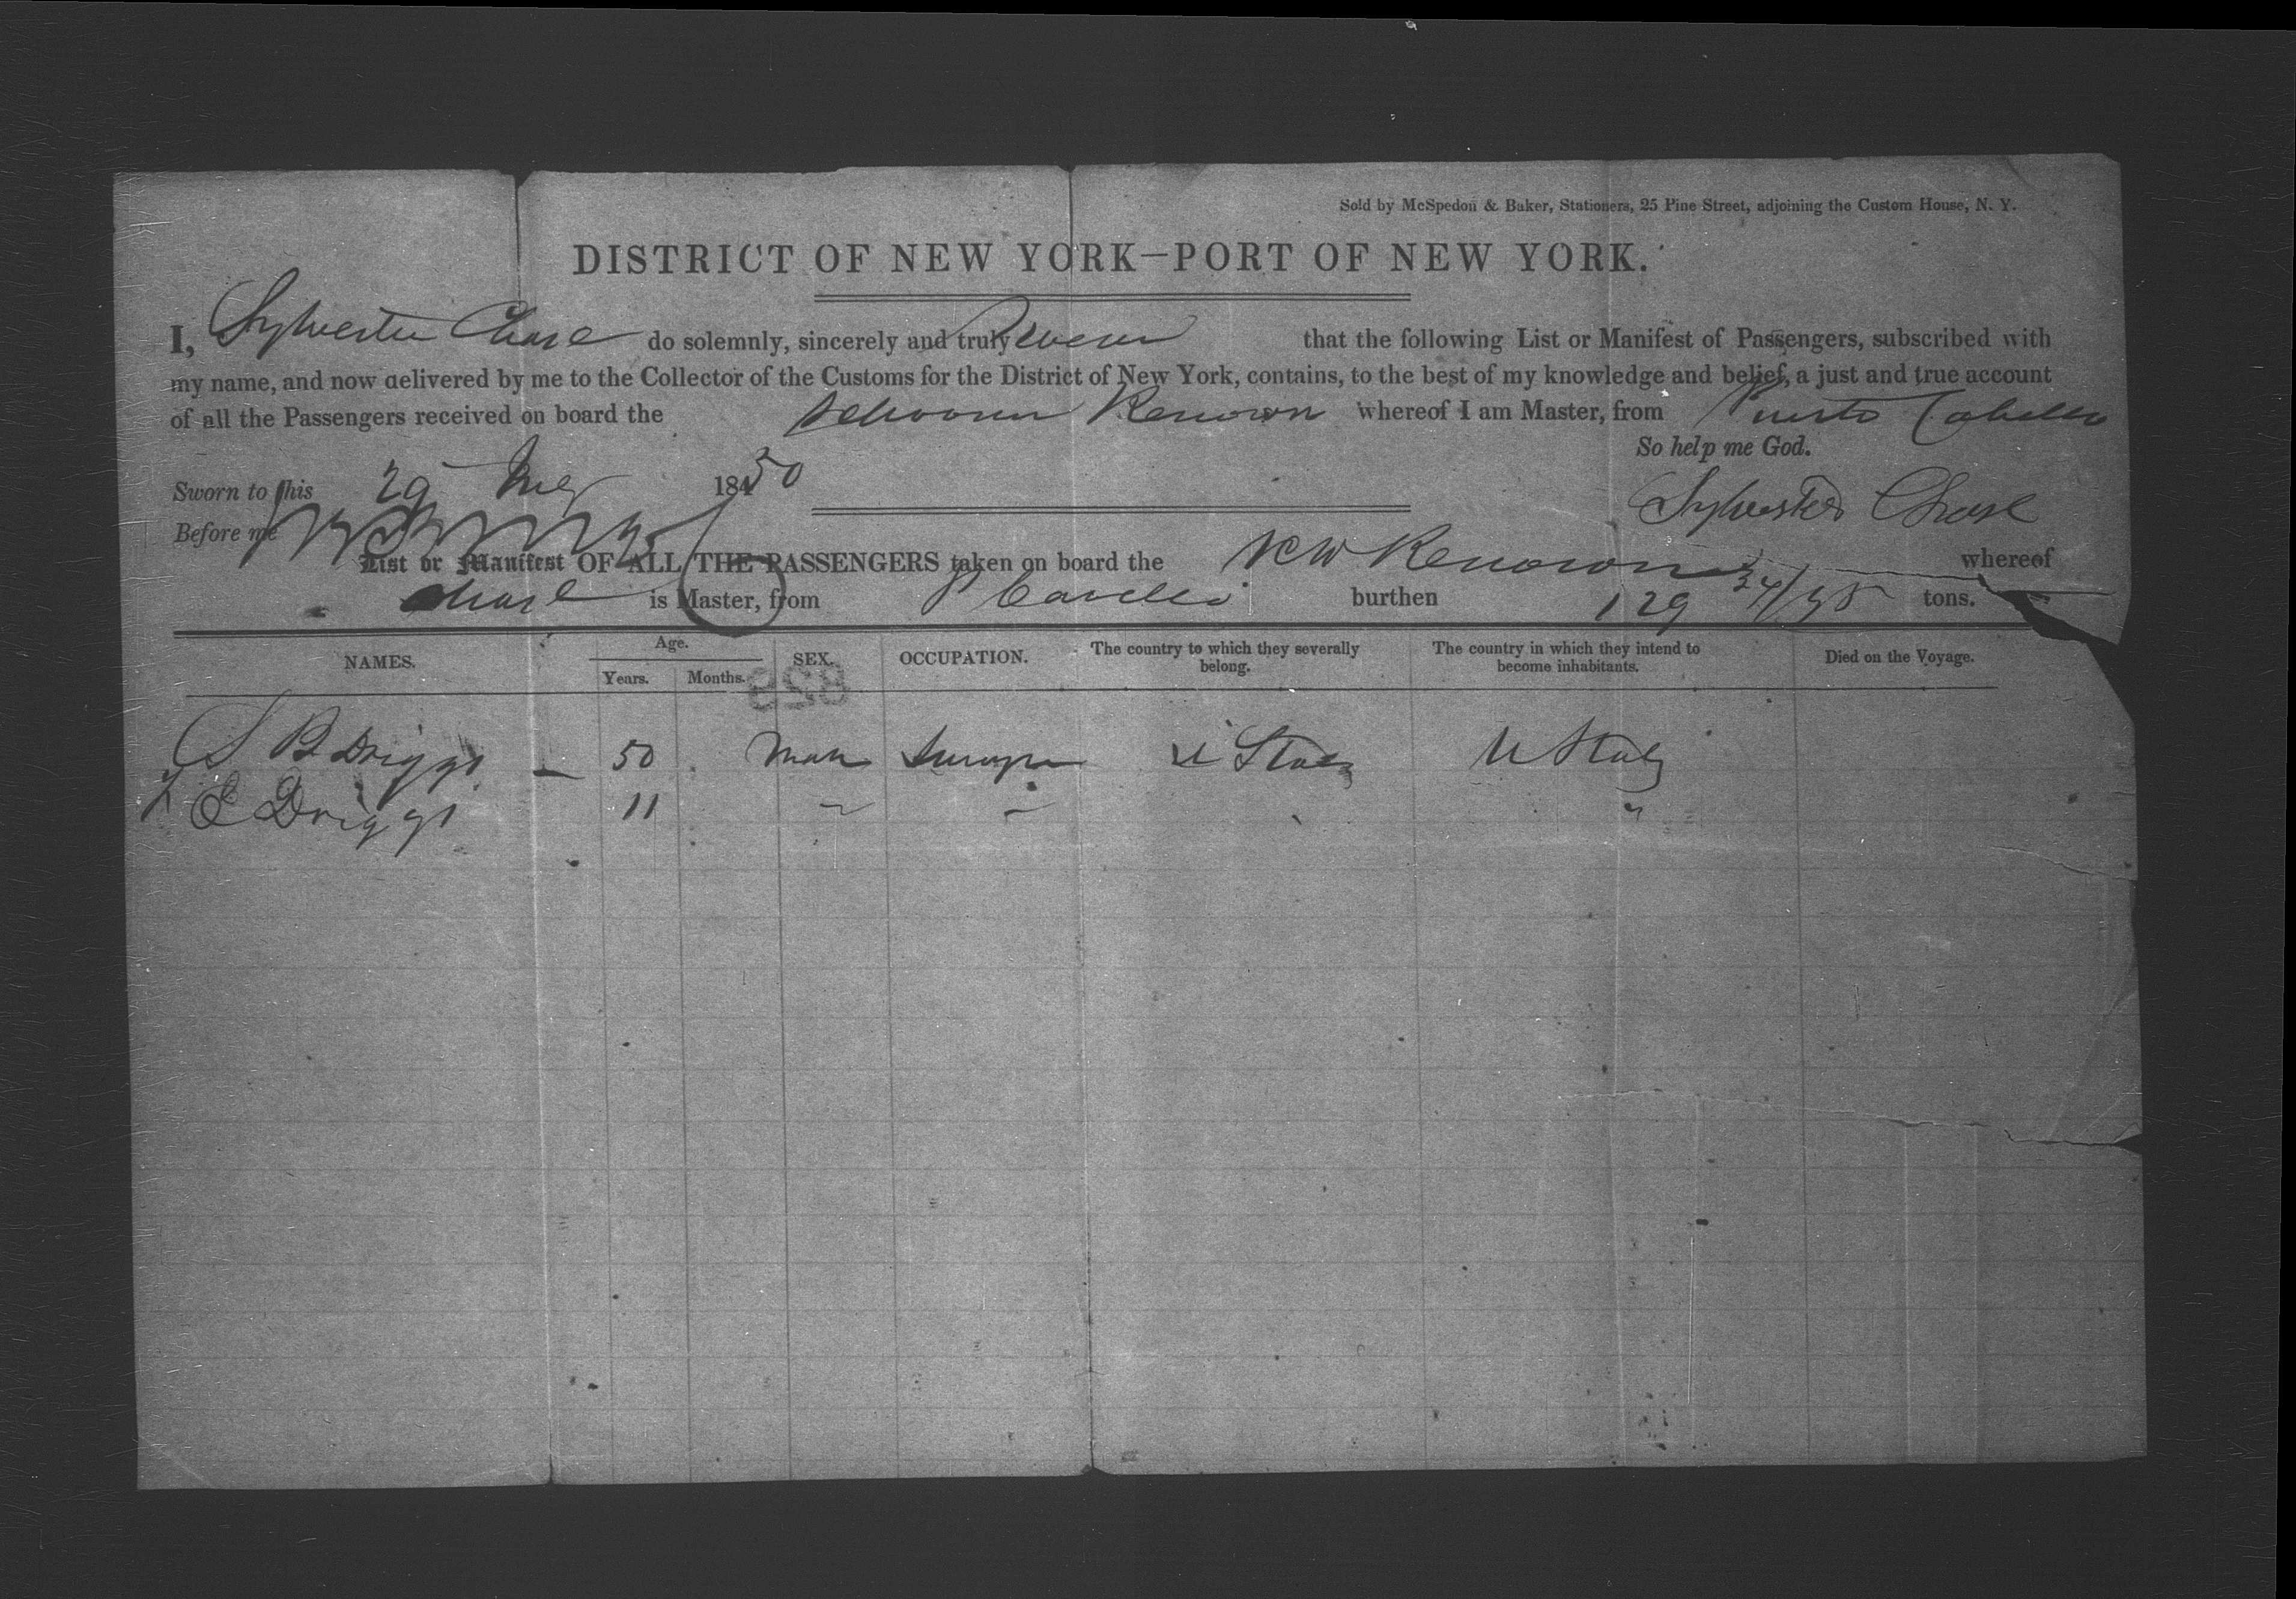 Sold by McSpedon & Baker, Stationers, 25 Pine Street, adjoining the Custom House, N. Y.
DISTRICT OF NEW YORK—PORT OF NEW YORK.
I, Sylvester Chase do solemnly, sincerely and truly swear that the following List or Manifest of Passengers, subscribed with
my name, and now delivered by me to the Collector of the Customs for the District of New York, contains, to the best of my knowledge and belief, a just and true account
of all the Passengers received on board the Schooner Renown whereof I am Master, from Puerto Cabello
So help me God.
Sworn to this 29 1850
Sylvester Chase
Before me
List or Manifest OF ALL THE PASSENGERS taken on board the Renown whereof
Chase is Master, from P Cavello burthen 129 34/95 tons.
NAMES. Age. Years. Months. SEX. OCCUPATION. The country to which they severally belong. The country in which they intend to become inhabitants. Died on the Voyage.
828
S B Driggs 50 U States U States
E Driggs 11 " " " "